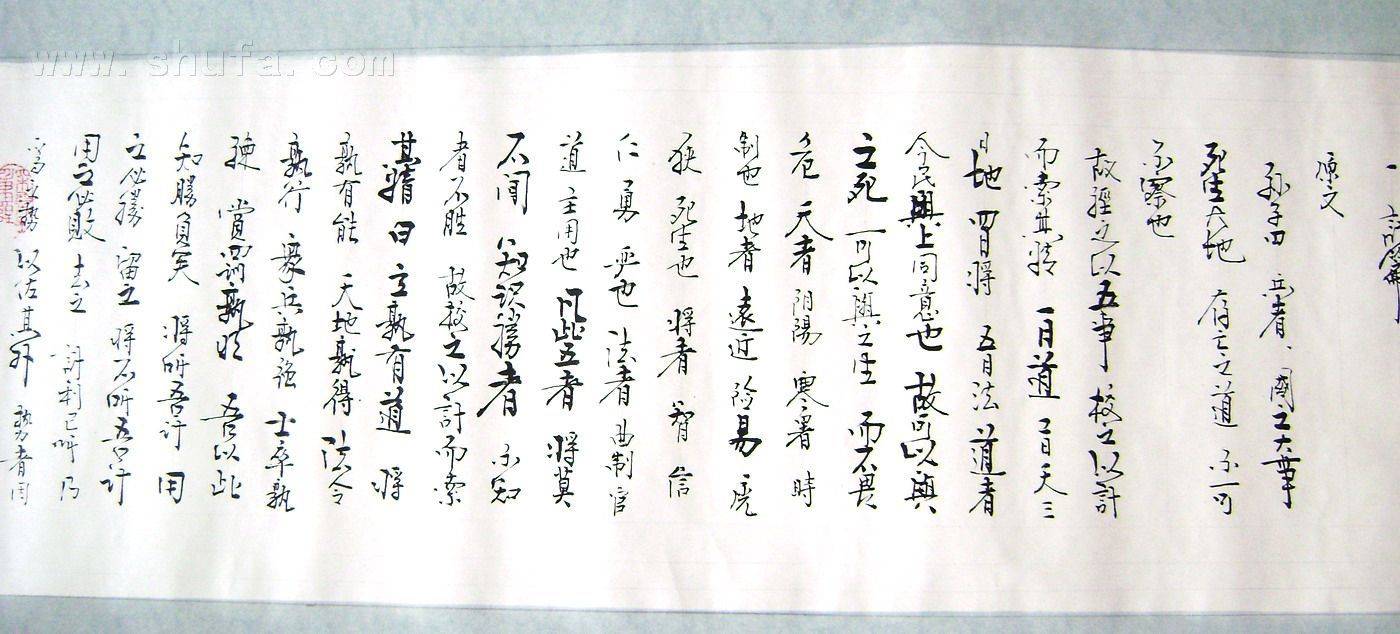 www.shufa.com
一 計篇
原文
孫子曰 兵者 國之大事
死生之地 存亡之道 不可
不察也
故經之以五事 校之以計
而索其情 一曰道 二曰天 三
曰地 四曰將 五曰法 道者
令民與上同意也 故可以與
之死 可以與之生 而不畏
危 天者 陰陽 寒暑 時
制也 地者 遠近 險易 廣
狹 死生也 將者 智 信
仁 勇 嚴也 法者 曲制 官
道 主用也 凡此五者 將莫
不聞 知之者勝 不知
者不胜 故校之以計而索
其情 曰 主孰有道 將
孰有能 天地孰得 法令
孰行 兵衆孰強 士卒孰
練 賞罰孰明 吾以此
知勝負矣 將听吾计 用
之必勝 留之 將不听吾计
用之必敗 去之 計利已听 乃
為之勢 以佐其外 勢者因